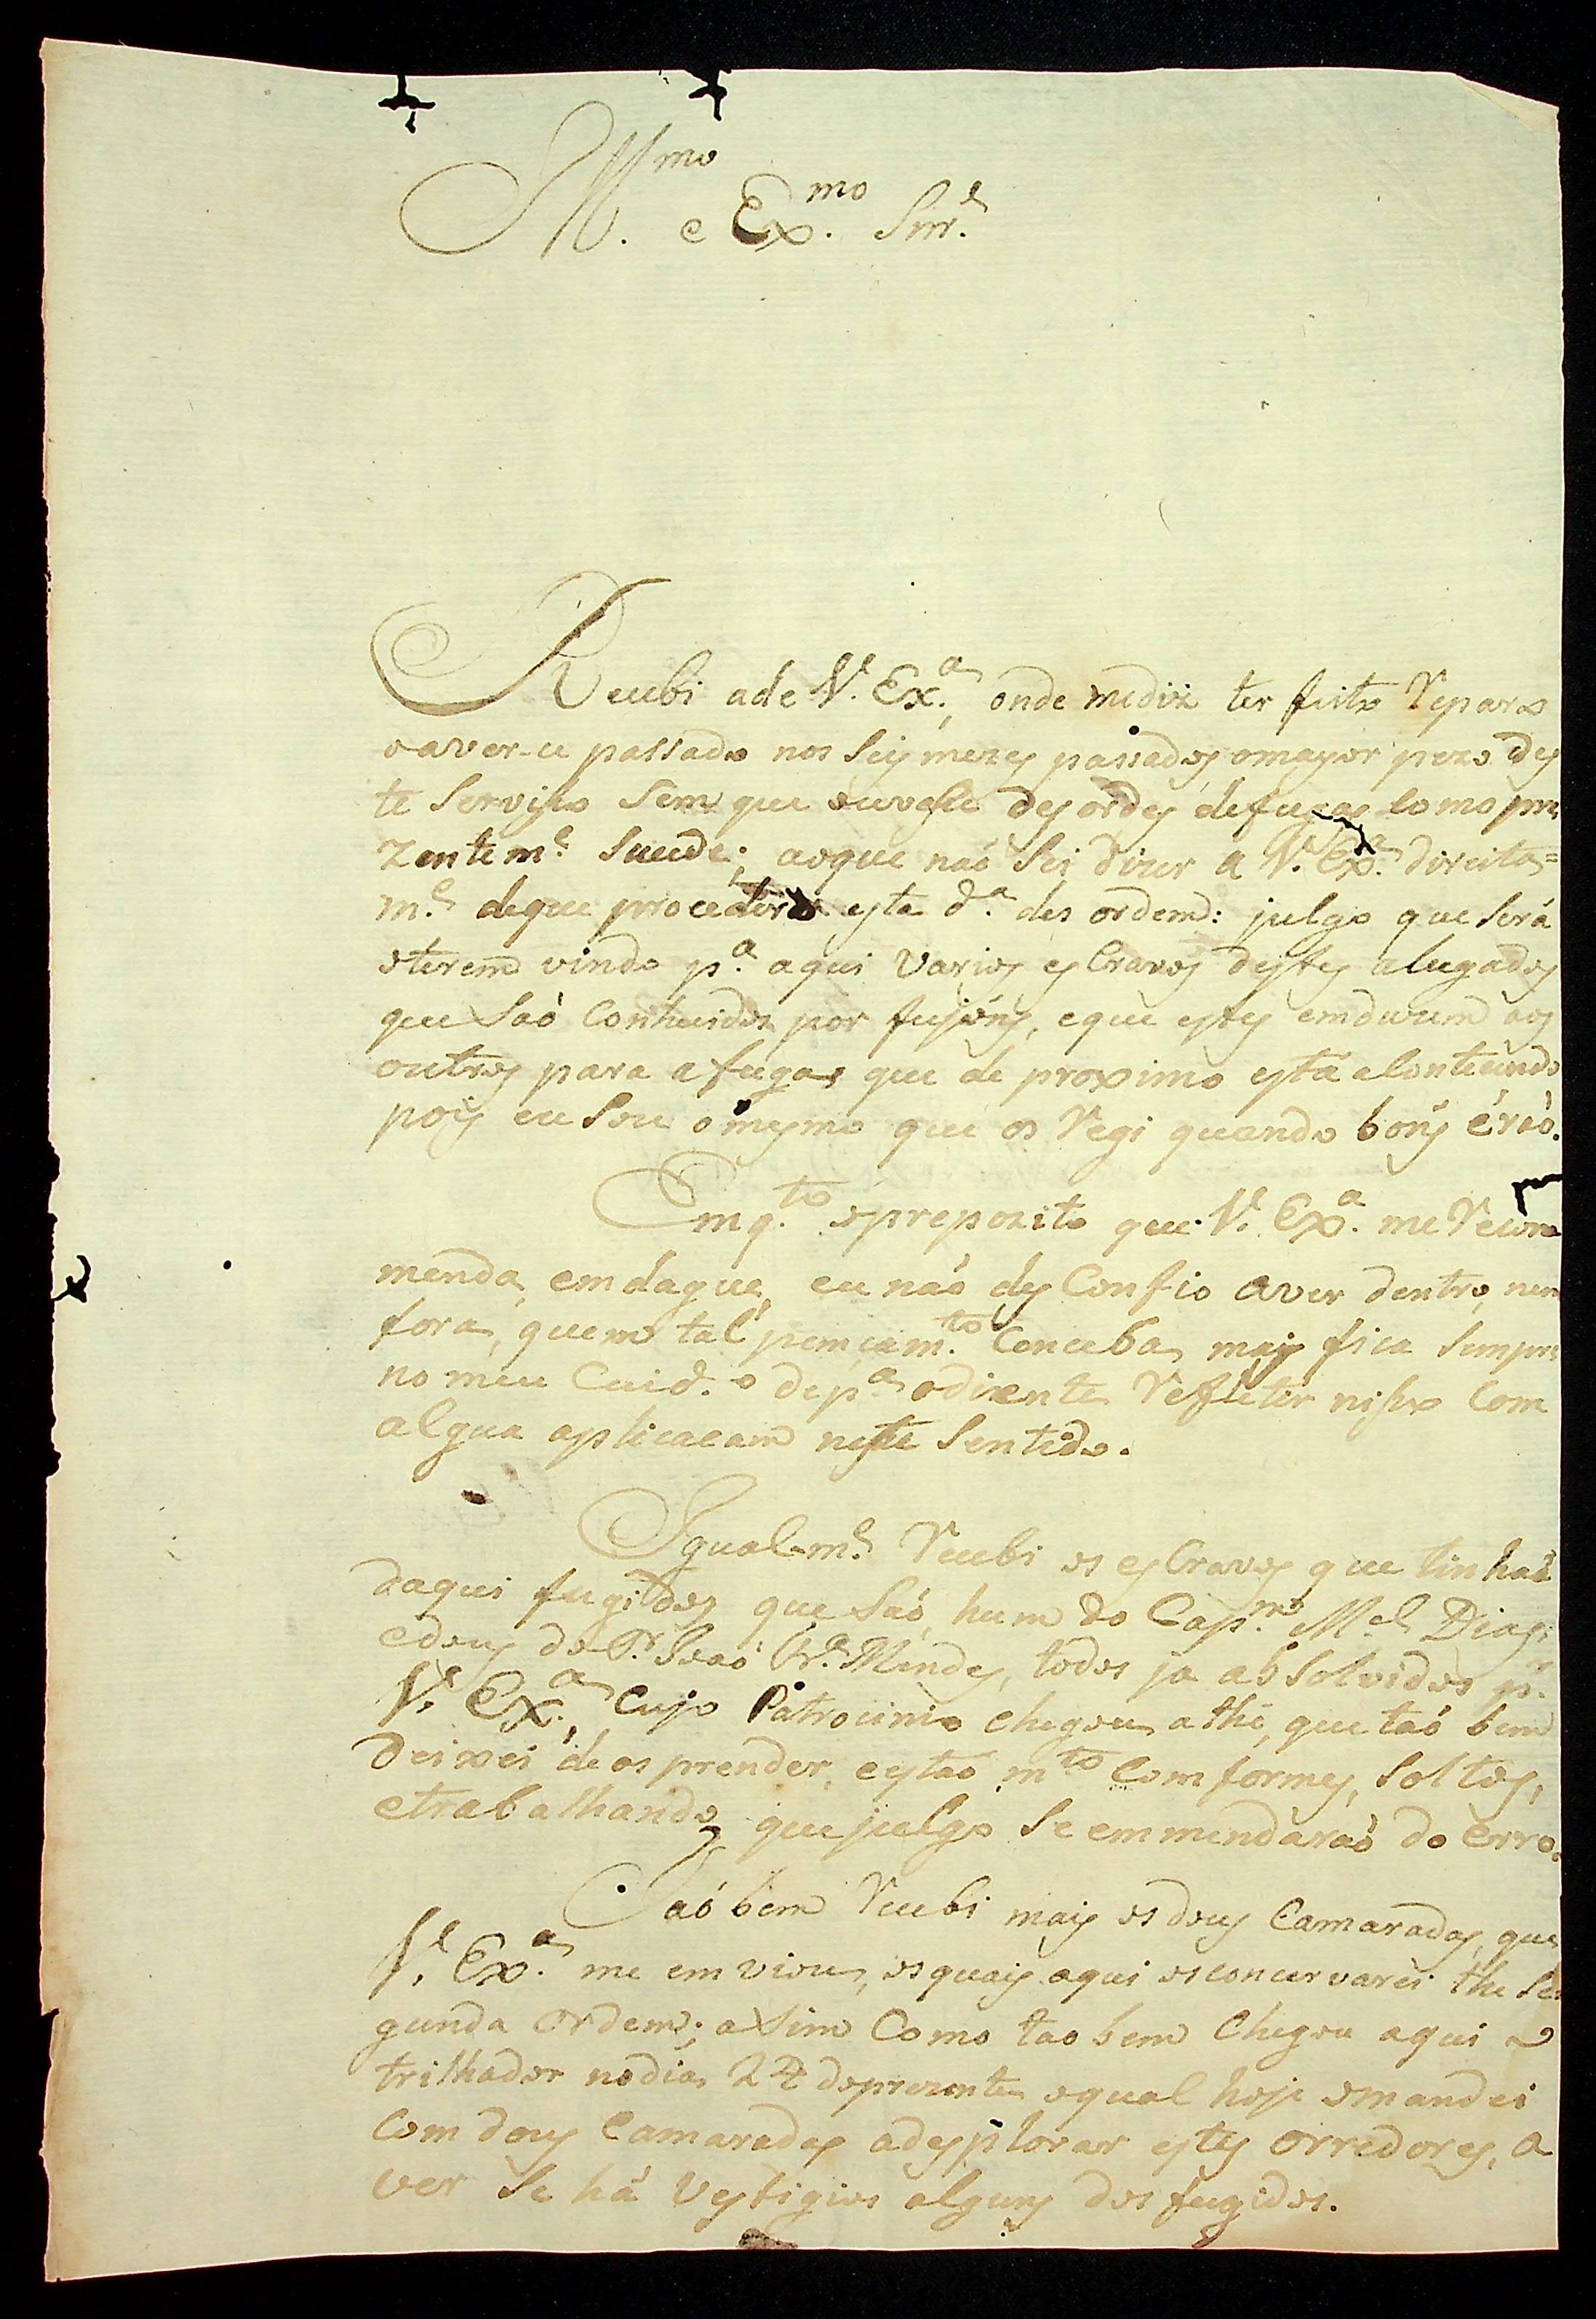 Ill.mo e Ex.mo Snr.
Recebi a de V. Ex.a, onde me diz ter feito reparo
o aver-ce passado nos seis mezes passados o mayor pezo des
te serviso sem que ouvese desordes de fugas como pre
zentem.e sucede; ao que naó sei dizer a V. Ex.a direita=
m.e de que procedera esta d.a des ordem: julgo que será
o terem vindo p.a aqui varios escravos destes alugados
que saó conhecidos por fujóns, e que estes emduzem aos
outros para a fugas que de proximo está acontecendo
pois eu sou o mesmo que os regi quando bons éraó.
Emq.to o prepozito que V. Ex.a me recom
menda, emdague, eu naó des confio aver dentro, nem
fora, quem tal pemçam.to conceba, mais fica sempre
no meu cuid.o de p.a o diente refleter nisso com
algua aplicacam neste sentido.
Igual-m.e recebi os escravos que tinhaó
daqui fugidos que saó, hum do Cap.m M.el Dias,
e dous do P.e Joaó Fr.a Mendes, todos ja absolvidos p.r
V. Ex.a, cujo Patrocinio chegou a thé, que taó bem
deixei de os prender, e estaó m.to comformes, soltos,
e trabalhando que julgo se emmendaraó do erro.
Taó bem recebi mais os dous camaradas, que
V. Ex.a me emviou, os quais aqui os concervarei the se
gunda ordem; asim como tao bem chegou aqui o
trilhador no dia 24 do prezente o qual hoje o mandei
com dous camaradas a desplorar estes orredores, a
ver se há vestigios alguns dos fugidos.